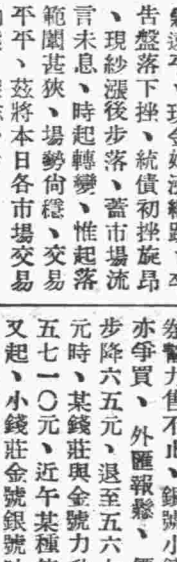 告盤落下挫、統債初挫旋昂
、現紗漲後步落、蓋市場流
言未息、時起轉變、惟起落
範圍甚狹、場勢尙穩、交易
平平、茲將本日各市場交易
力售不止、銀號小
亦爭買、外匯報懸、
步降六五元、退至五六
元時、某錢莊與金號力
五七一〇元、近午某種
又起、小錢莊金號銀號